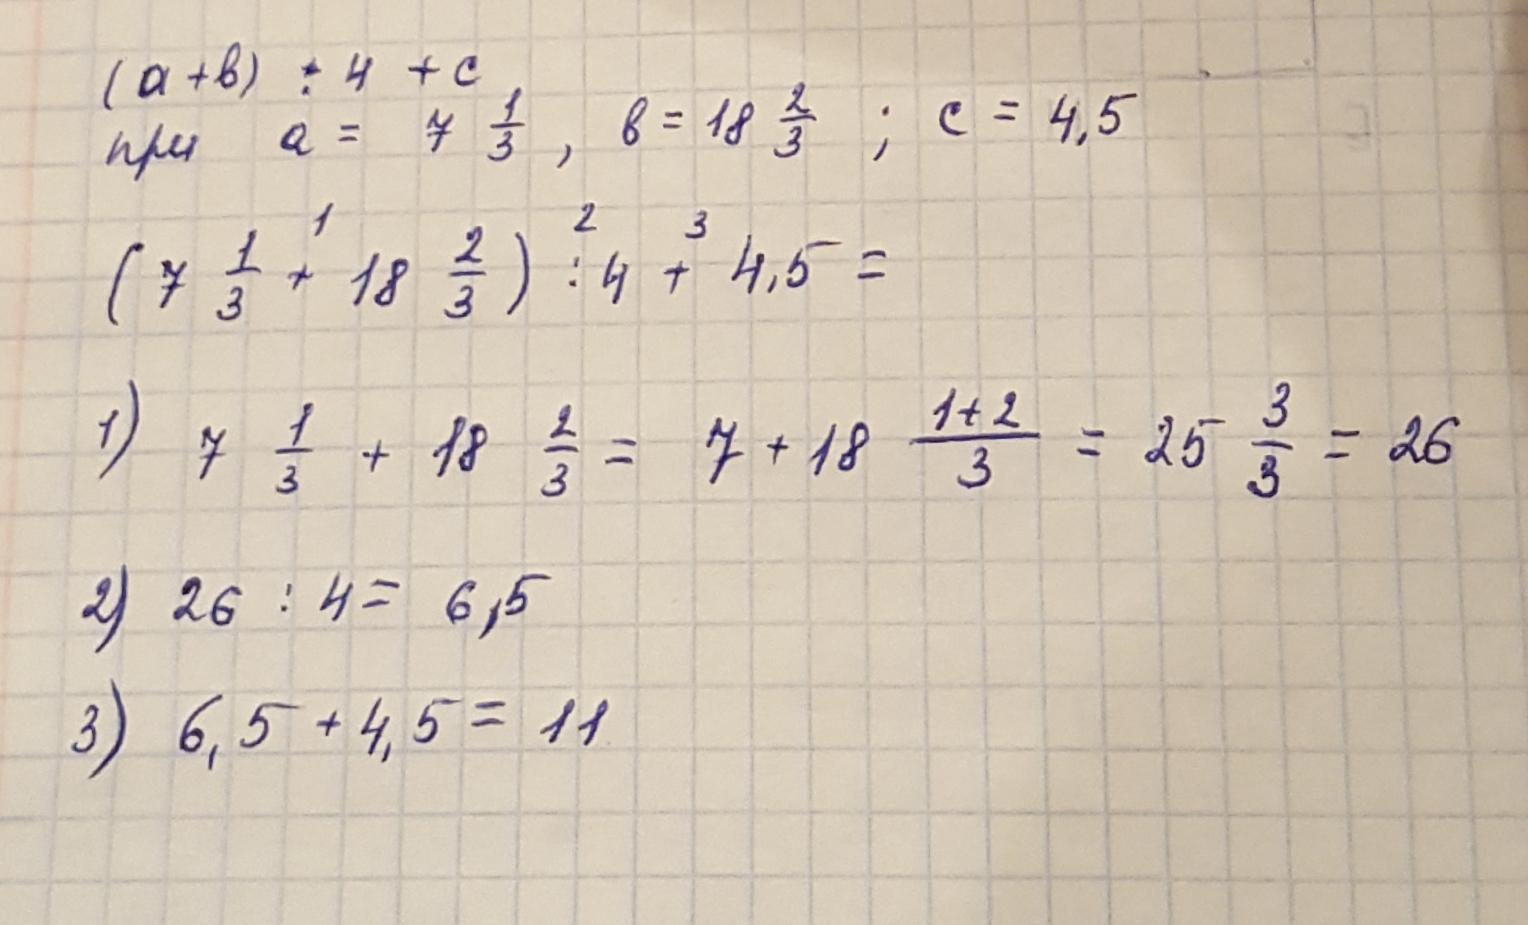 (а+в) : 4 + с
при а = 7 1/3, в = 18 2/3; с = 4,5
1 2 3
(7 1/3 + 18 2/3) : 4 + 4,5 =
1) 7 1/3 + 18 2/3 = 7 + 18 (1+2)/3 = 25 3/3 = 26
2) 26 : 4 = 6,5
3) 6,5 + 4,5 = 11